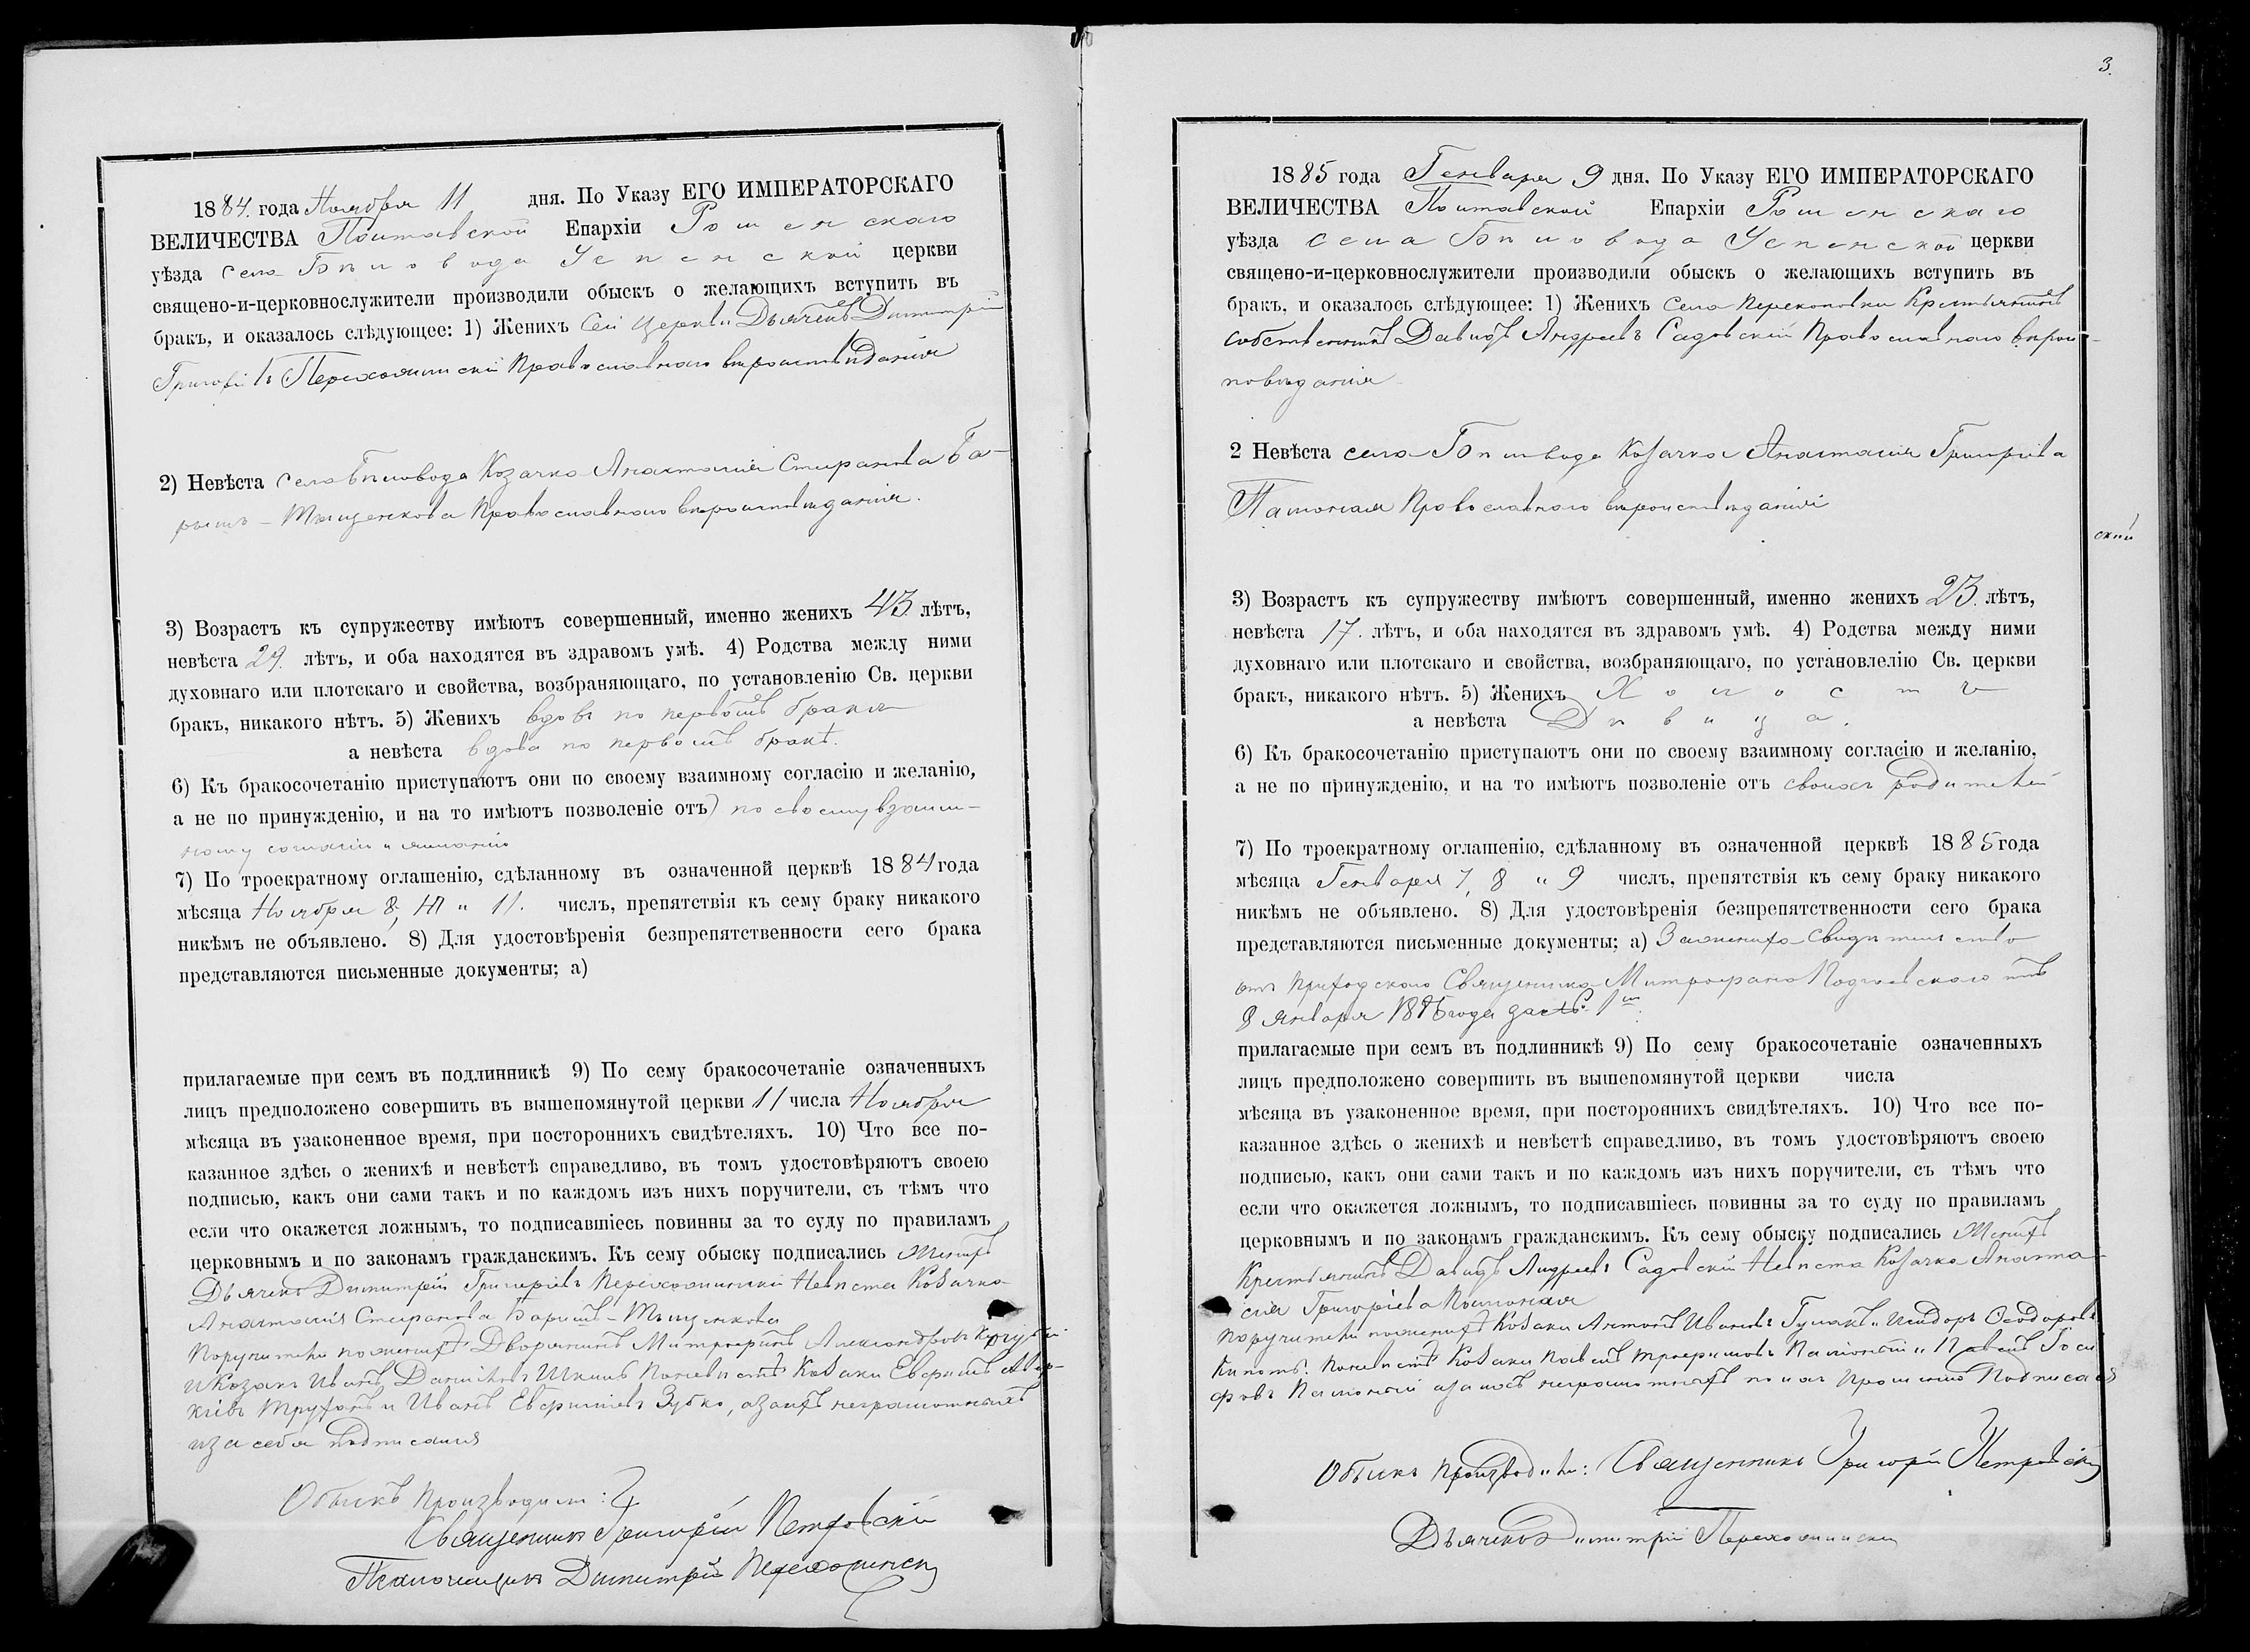 1884. года Ноября 11 дня. По Указу ЕГО ИМПЕРАТОРСКАГО
ВЕЛИЧЕСТВА Полтавской Епархіи Роменскаго
уѣзда села Біловода Успенской церкви
священо-и-церковнослужители производили обыскъ о желающихъ вступить въ
бракъ, и оказалось слѣдующее: 1) Женихъ Сей Церкви Дьячекъ Димитрій
Григоріевъ Православнаго вѣроисповѣданія
2) Невѣста села Біловода Козачка Анастасія Стефанова Ба-
рышъ-Тыщенкова Православнаго вѣроисповѣданія.
3) Возрастъ къ супружеству имѣютъ совершенный, именно женихъ 43. лѣтъ,
невѣста 29. лѣтъ, и оба находятся въ здравомъ умѣ. 4) Родства между ними
духовнаго или плотскаго и свойства, возбраняющаго, по установленію Св. церкви
бракъ, никакого нѣтъ. 5) Женихъ вдовъ по первомъ бракѣ
а невѣста вдова по первомъ бракѣ.
6) Къ бракосочетанію приступаютъ они по своему взаимному согласію и желанію,
а не по принужденію, и на то имѣютъ позволеніе отъ) по своему взаим-
ному согласію и желанію
7) По троекратному оглашенію, сдѣланному въ означенной церквѣ 1884 года
мѣсяца Ноября 8, 10 и 11. числъ, препятствія къ сему браку никакого
никѣмъ не объявлено. 8) Для удостовѣренія безпрепятственности сего брака
представляются письменные документы; а)
прилагаемые при семъ въ подлинникѣ 9) По сему бракосочетаніе означенныхъ
лицъ предположено совершить въ вышепомянутой церкви 11 числа Ноября
мѣсяца въ узаконенное время, при постороннихъ свидѣтеляхъ. 10) Что все по-
казанное здѣсь о женихѣ и невѣстѣ справедливо, въ томъ удостовѣряютъ своею
подписью, какъ они сами такъ и по каждомъ изъ нихъ поручители, съ тѣмъ что
если что окажется ложнымъ, то подписавшіесь повинны за то суду по правиламъ
церковнымъ и по законамъ гражданскимъ. Къ сему обыску подписались Женихъ
Дьячекъ Димитрій Григоріевъ Невѣста Козачка
Анастасія Стефанова Барышъ-Тыщенкова
Поручители по женихѣ Дворянинъ Митрофанъ Александровъ
и Козакъ Иванъ Даниловъ по невѣстѣ Козаки
и Иванъ Зубко, а за неграмотныхъ
и за себя подписался
Обыскъ производили:
Священникъ Григорій Петровскій
Псаломщикъ Димитрій
3.
1885 года Генваря 9 дня. По Указу ЕГО ИМПЕРАТОРСКАГО
ВЕЛИЧЕСТВА Полтавской Епархіи Роменскаго
уѣзда села Біловода Успенской церкви
священо-и-церковнослужители производили обыскъ о желающихъ вступить въ
бракъ, и оказалось слѣдующее: 1) Женихъ села Перекоповки Крестьянинъ
собственникъ Давидъ Андреевъ Садовскій Православнаго вѣроис-
повѣданія
2 Невѣста села Біловода Козачка Анастасія Григоріева
Православнаго вѣроисповѣданія
скій
3) Возрастъ къ супружеству имѣютъ совершенный, именно женихъ 23. лѣтъ,
невѣста 17. лѣтъ, и оба находятся въ здравомъ умѣ. 4) Родства между ними
духовнаго или плотскаго и свойства, возбраняющаго, по установлелію Св. церкви
бракъ, никакого нѣтъ. 5) Женихъ Холостъ
а невѣста Дѣвица.
6) Къ бракосочетанію приступаютъ они по своему взаимному согласію и желанію,
а не по принужденію, и на то имѣютъ позволеніе отъ своихъ родителей
7) По троекратному оглашенію, сдѣланному въ означенной церквѣ 1885 года
мѣсяца Генваря 7, 8 и 9 числъ, препятствія къ сему браку никакого
никѣмъ не объявлено. 8) Для удостовѣренія безпрепятственности сего брака
представляются письменные документы; а) За жениха свидѣтельство
отъ приходскаго Священника Митрофана отъ
8 января года за № 1м
прилагаемые при семъ въ подлинникѣ 9) По сему бракосочетаніе означенныхъ
лицъ предположено совершить въ вышепомянутой церкви числа
мѣсяца въ узаконенное время, при постороннихъ свидѣтеляхъ. 10) Что все по-
казанное здѣсь о женихѣ и невѣстѣ справедливо, въ томъ удостовѣряютъ своею
подписью, какъ они сами такъ и по каждомъ изъ нихъ поручители, съ тѣмъ что
если что окажется ложнымъ, то подписавшіесь повинны за то суду по правиламъ
церковнымъ и по законамъ гражданскимъ. Къ сему обыску подписались Женихъ
Крестьянинъ Давидъ Андреевъ Садовскій Невѣста Козачка Анаста-
сія Григоріева
Поручители по женихѣ Козаки Антонъ Ивановъ и Исидоръ Ѳеодоровъ
по невѣстѣ Козаки Павелъ Трофимовъ и Павелъ Іоси-
фовъ а за неграмотныхъ по ихъ прошенію Подписался
Обыскъ производили: Священникъ Григорій Петровскій
Дьячекъ Димитрій